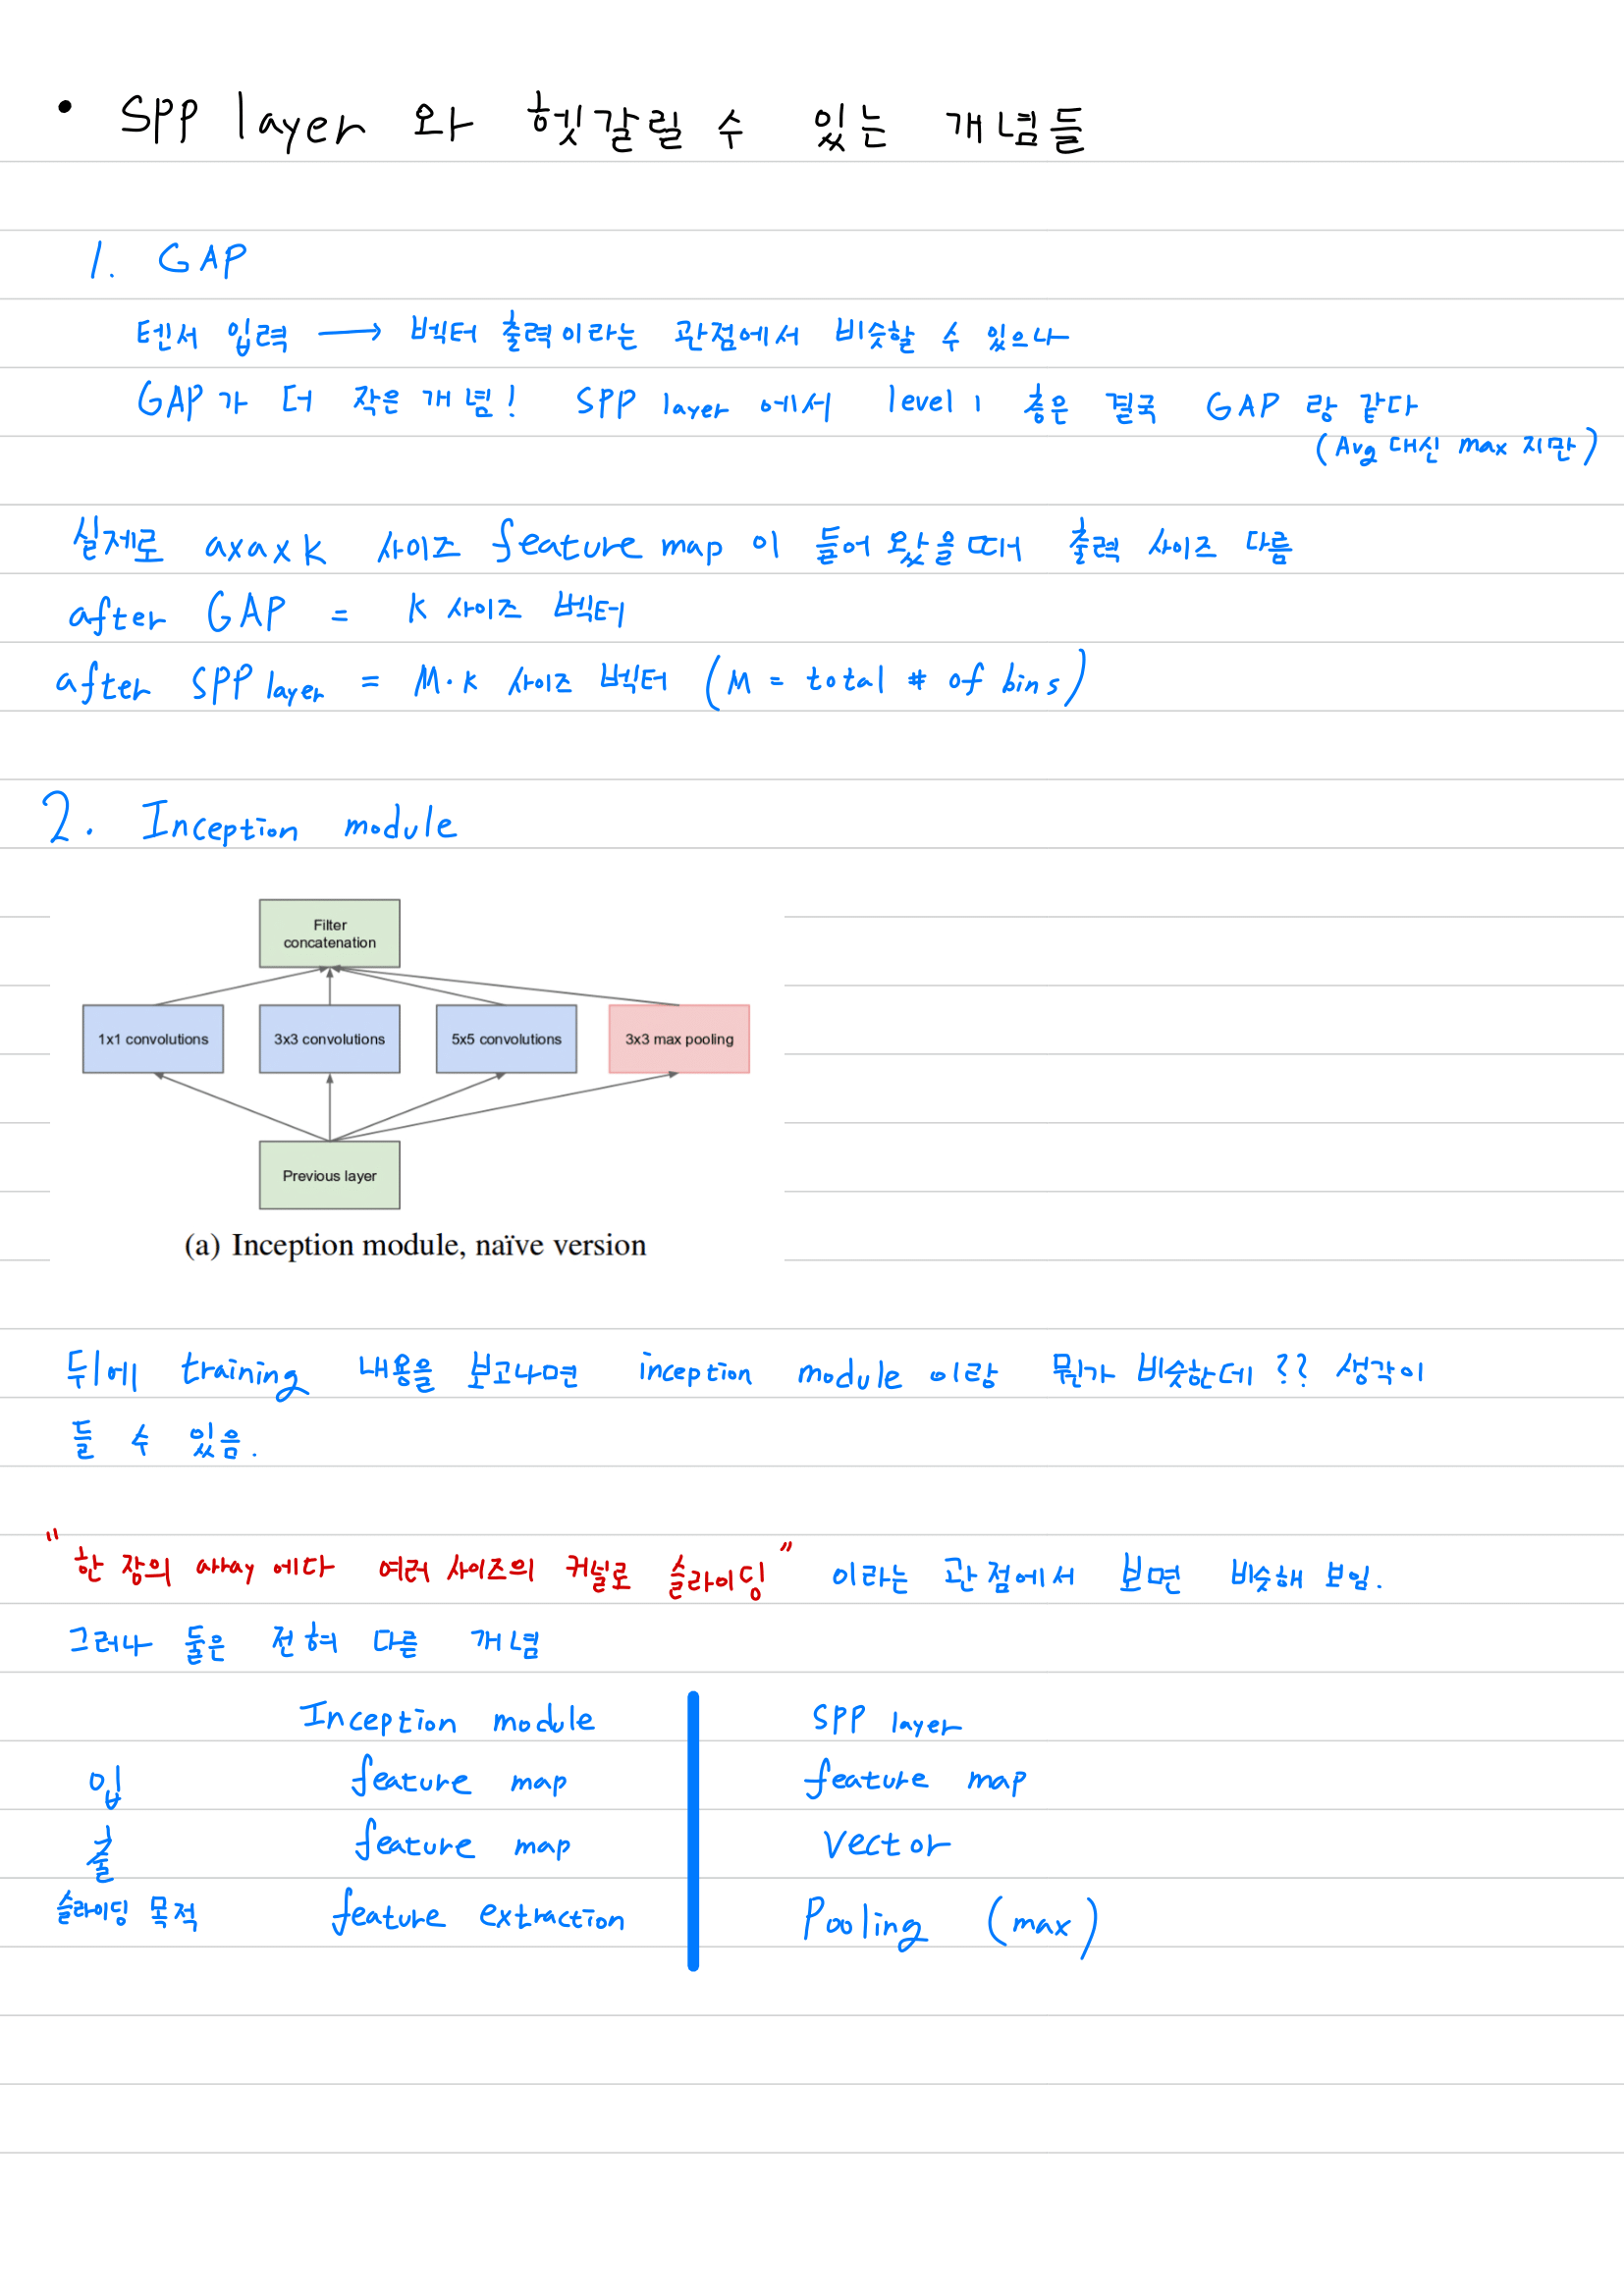 • SPP layer 와 헷갈릴 수 있는 개념들
1. GAP
텐서 입력 → 벡터 출력이라는 관점에서 비슷할 수 있으나
GAP가 더 작은 개념! SPP layer 에서 level 1 층은 결국 GAP 랑 같다
(Avg 대신 max 지만)
실제로 axaxk 사이즈 feature map 이 들어왔을 때 출력 사이즈 다름
after GAP = k 사이즈 벡터
after SPP layer = M·k 사이즈 벡터 (M = total # of bins)
2. Inception module
Filter
concatenation
1x1 convolutions 3x3 convolutions 5x5 convolutions 3x3 max pooling
Previous layer
(a) Inception module, naïve version
뒤에 training 내용을 보고나면 inception module 이랑 뭔가 비슷한데?? 생각이
들 수 있음.
"한 장의 array 에다 여러 사이즈의 커널로 슬라이딩" 이라는 관점에서 보면 비슷해 보임.
그러나 둘은 전혀 다른 개념
Inception module SPP layer
입 feature map feature map
출 feature map vector
슬라이딩 목적 feature extraction Pooling (max)